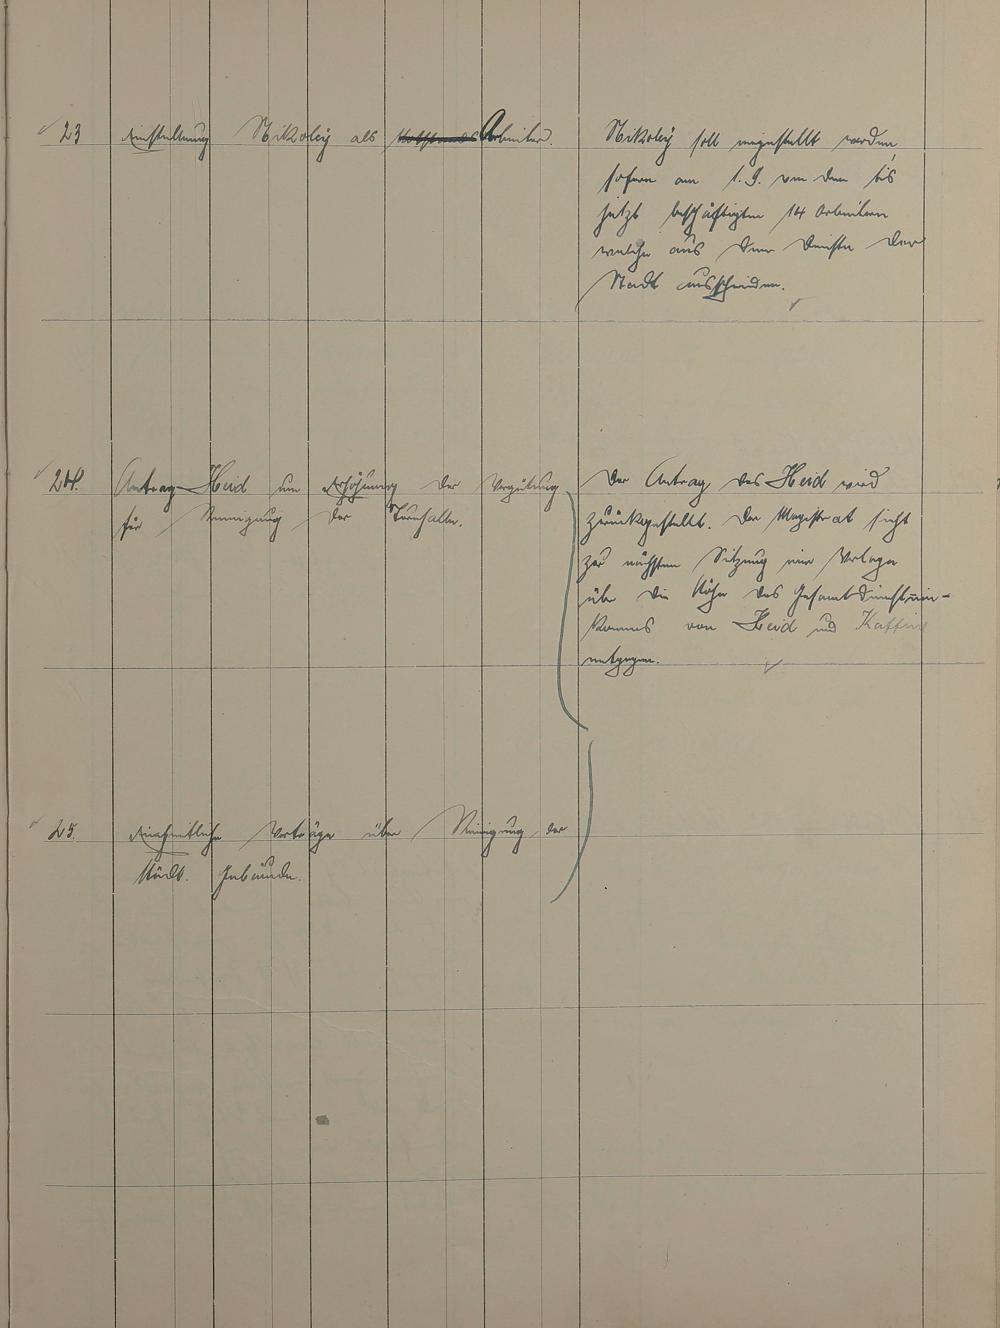 23 Einstellung Nikoley als Arbeiter.
Nikoley soll eingestellt werden,
sofern am 1.9. von den bis
jetzt beschäftigten 14 Arbeitern
welche aus dem Dienste der
Stadt ausscheiden.
24. Antrag Heid um Erhöhung der Vergütung
für Reinigung der Turnhalle.
Der Antrag des Heid wird
zurückgestellt. Der Magistrat sieht
zur nächsten Sitzung einer Vorlage
über die Höhe des Gesamtdienstein-
kommens von Heid und
entgegen.
25. Einheitliche Verträge über Reinigung der
städt. Gebäude.